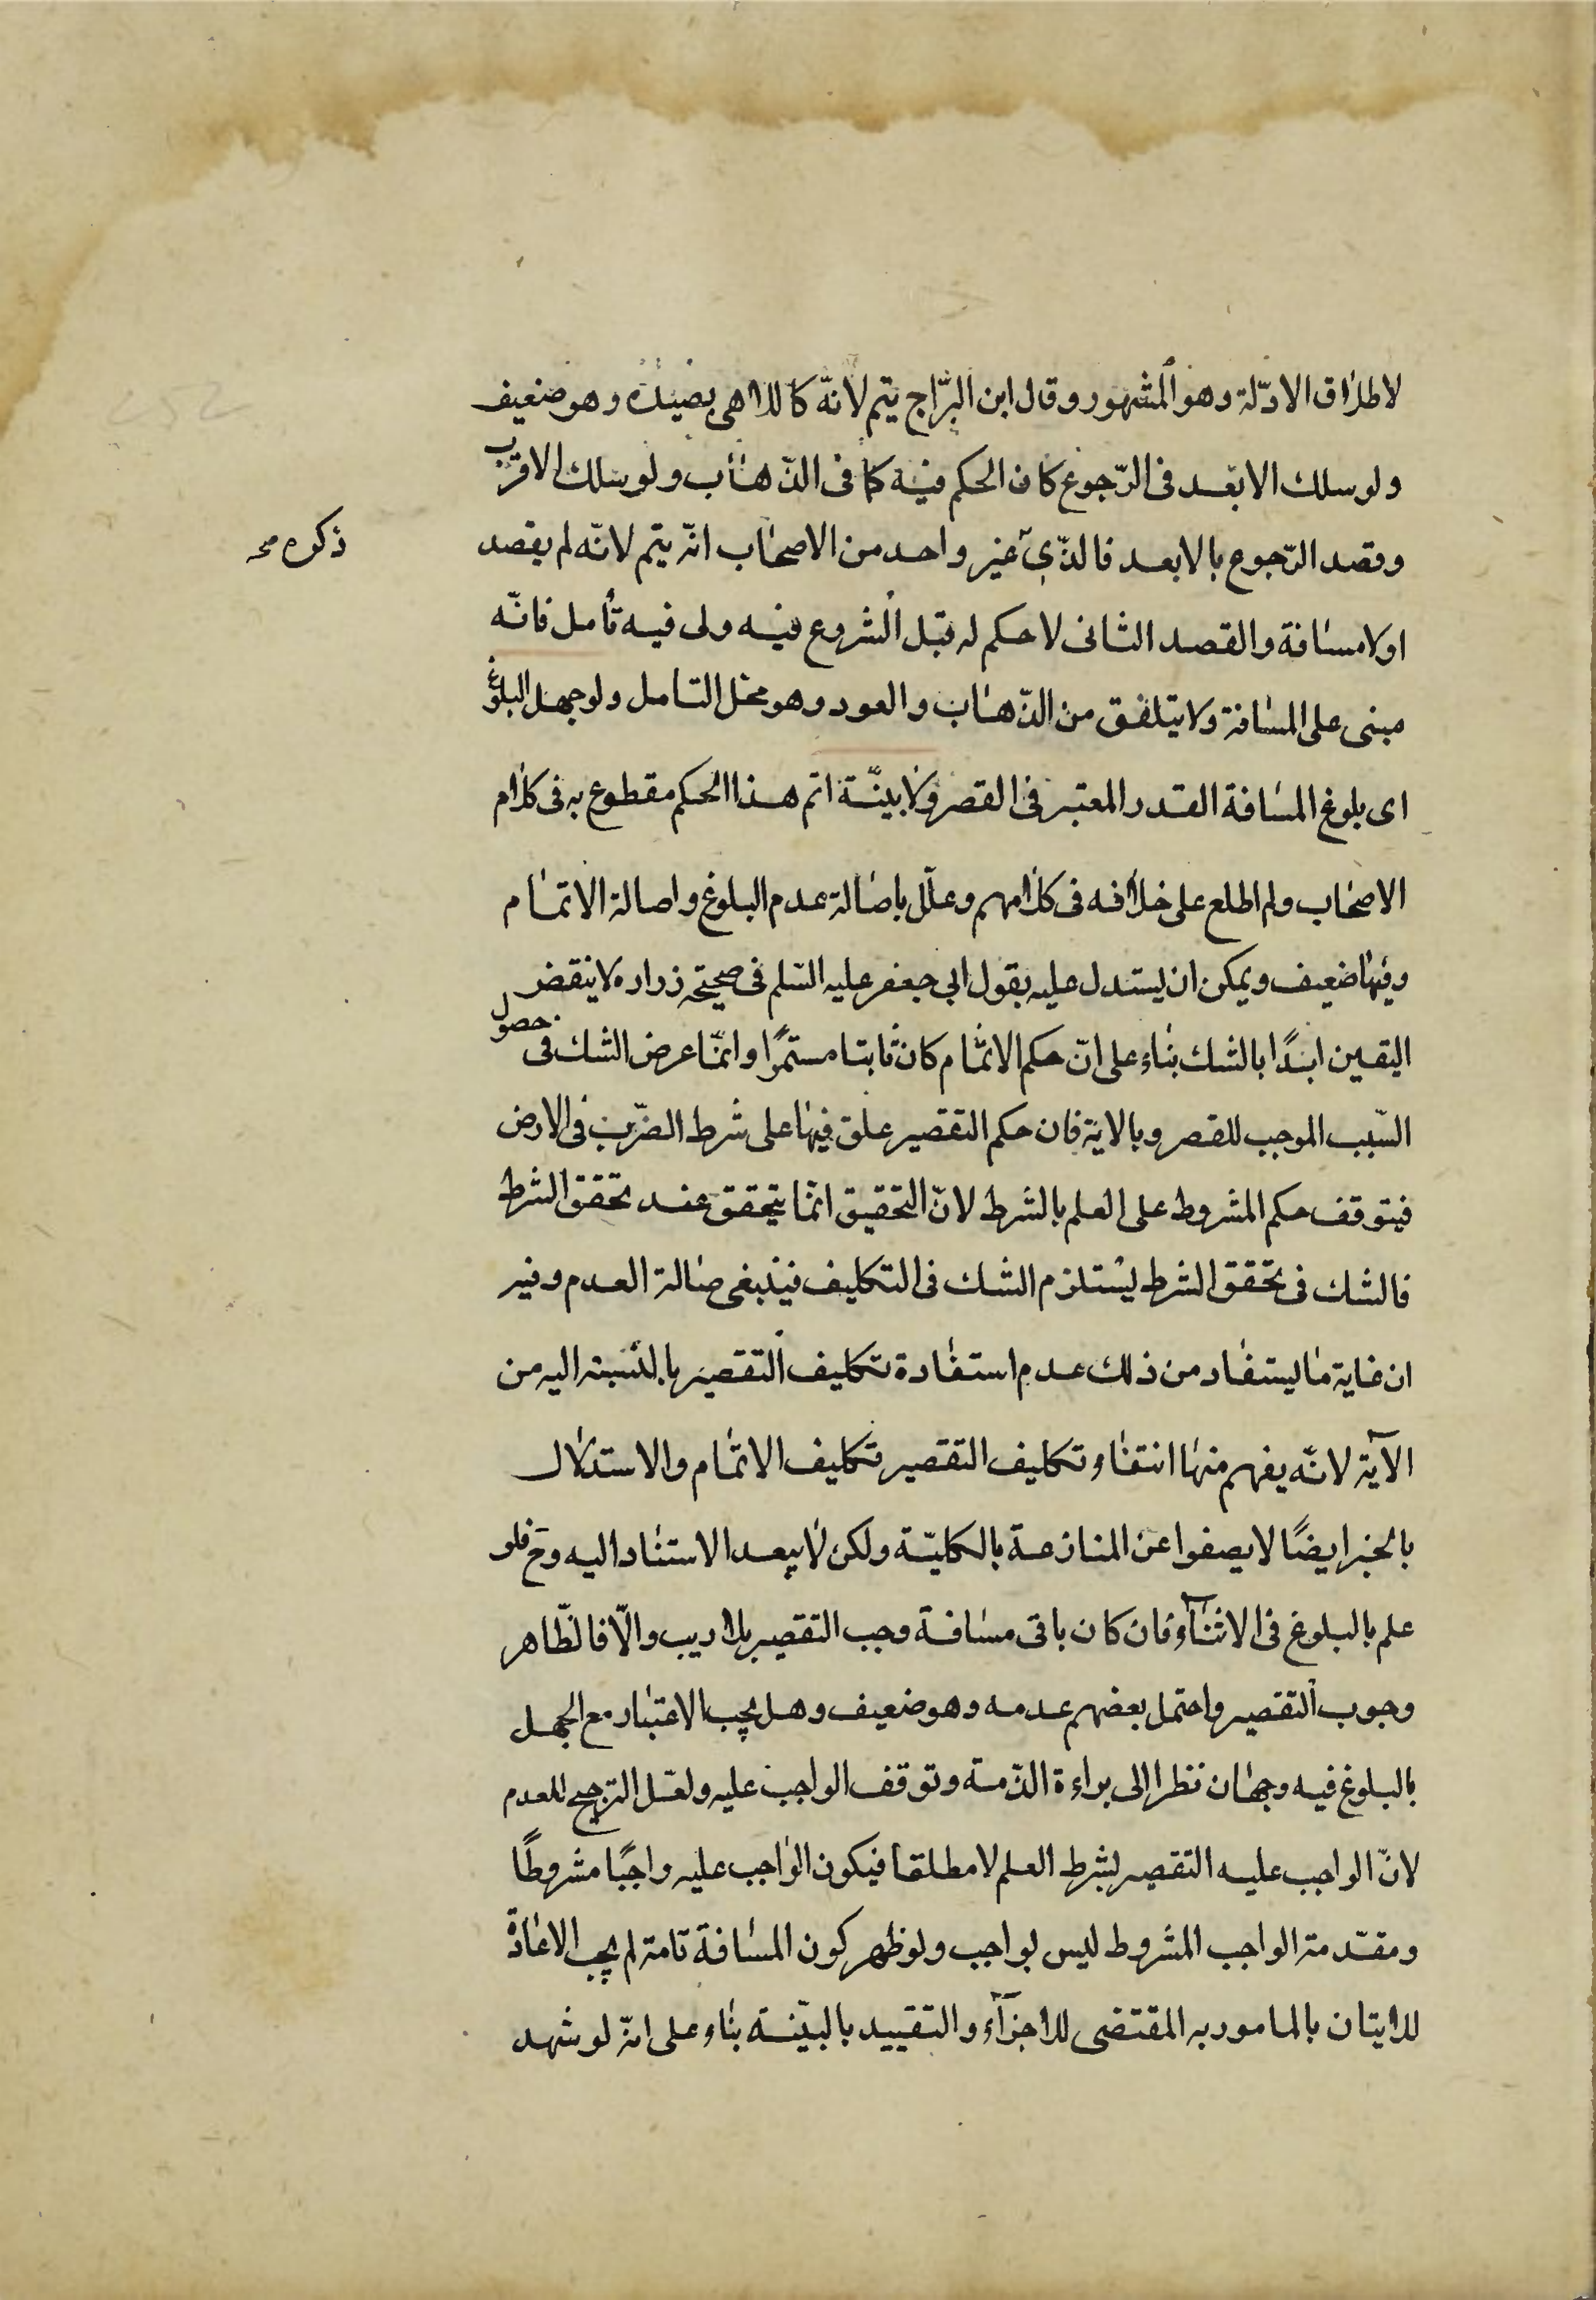 لاطلاق الادّلة وهو المشهور وقال ابن البرّاج يتم لانّه كاللاهى بصيده وهو ضعيف
ولو سلك الابعد فى الرّجوع كان الحكم فيه كما فى الذّهاب ولو سلك الاقرب
وقصد الرّجوع بالابعد فالذّى غير واحد من الاصحاب انّه يتم لانّه لم يقصد
ذكره صح
اولا مسافة والقصد الثانى لا حكم له قبل الشروع فيه ولى فيه تأمل فانّه
مبنى على المسافة ولا يتلفق من الذّهاب والعود وهو محل التامل ولو جهل البلوغ
اى بلوغ المسافة القدر المعتبر فى القصر ولا بيّنة اتم هذا الحكم مقطوع به فى كلام
الاصحاب ولم اطلع على خلافه فى كلامهم وعلّل باصالة عدم البلوغ واصالة الاتمام
وفيها ضعيف ويمكن ان يستدل عليه بقول ابى جعفر عليه السّلم فى صحيحة زراره لا ينقض
اليقين ابدًا بالشك بناء على انّ حكم الاتمام كان ثابتا مستمرًا وانّما عرض الشك فى حصول
السّبب الموجب للقصر وبالاية فان حكم التقصير علق فيها على شرط الضّرب فى الارض
فيتوقف حكم المشروط على العلم بالشرط لانّ التحقيق انّما يتحقق عند تحقق الشرط
فالشك فى تحقق الشرط يستلزم الشك فى التكليف فينبغى صالة العدم وفيه
ان غاية ما يستفاد من ذلك عدم استفادة تكليف التقصير بالنسبة اليه من
الآية لانّه يفهم منها انتفاء تكليف التقصير تكليف الاتمام والاستدلال
بالخبر ايضًا لا يصفوا عن المنازعة بالكليّة ولكن لا يبعد الاستناد اليه وح فلو
علم بالبلوغ فى الاثناء فان كان باقى مسافة وجب التقصير بلا ريب والّا فالظّاهر
وجوب التقصير واحتمل بعضهم عدمه وهو ضعيف وهل يجب الاعتبار مع الجهل
بالبلوغ فيه وجهان نظرا الى براءة الذّمة وتوقف الواجب عليه ولعّل الترجيح للعدم
لانّ الواجب عليه التقصير بشرط العلم لا مطلقا فيكون الواجب عليه واجبًا مشروطًا
ومقدّمة الواجب المشروط ليس بواجب ولو ظهر كون المسافة تامة لم يجب الاعادة
للاتيان بالمامور به المقتضى للاجزآء والتقييد بالبيّنة بناء على انّه لو شهد